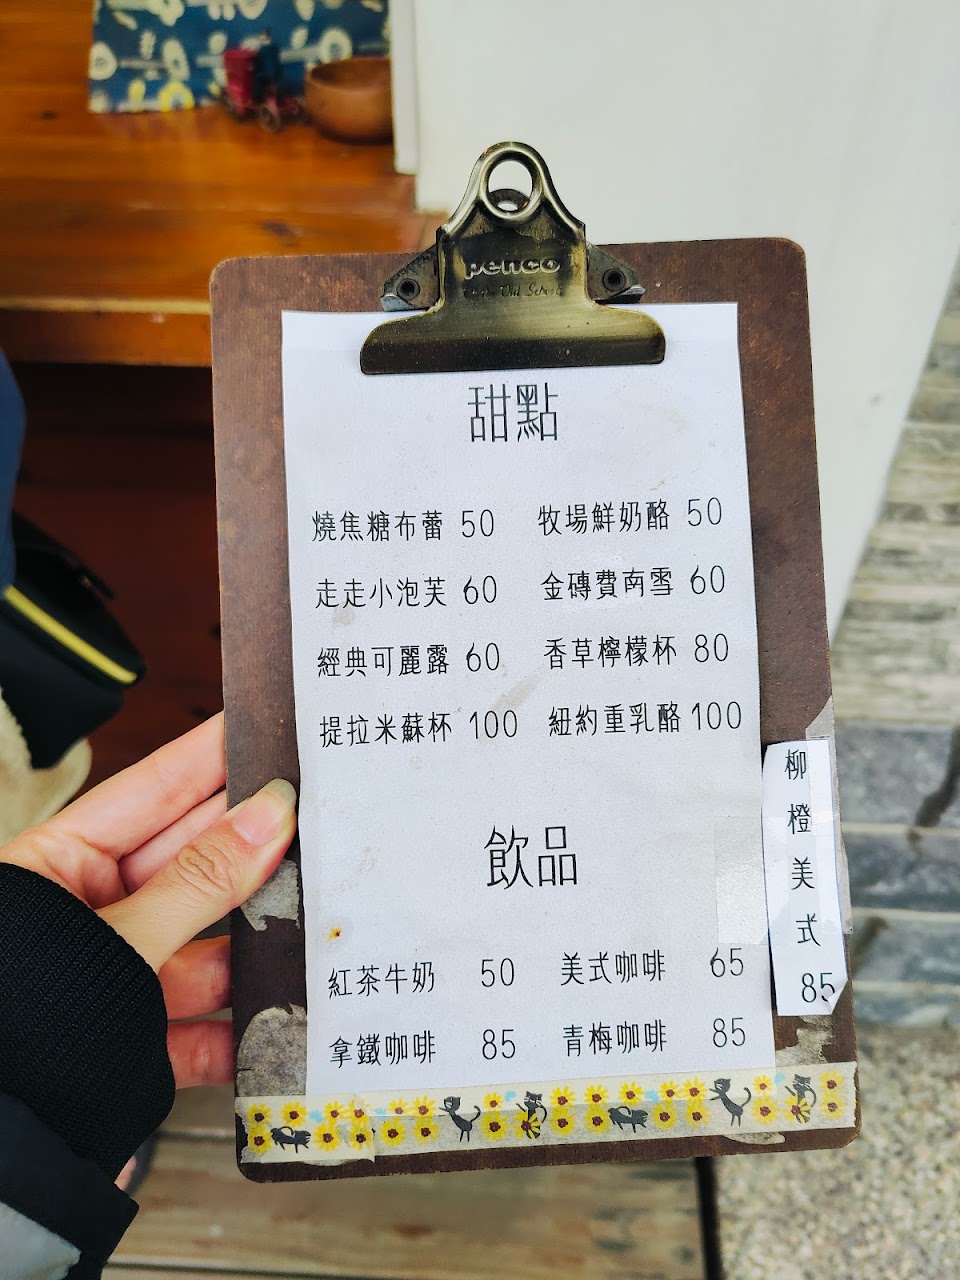 penco
甜點
燒焦糖布蕾 50 牧場鮮奶酪 50
走走小泡芙 60 金磚費南雪 60
經典可麗露 60 香草檸檬杯 80
提拉米蘇杯 100 紐約重乳酪 100
飲品
紅茶牛奶 50 美式咖啡 65
拿鐵咖啡 85 青梅咖啡 85
柳橙美式 85